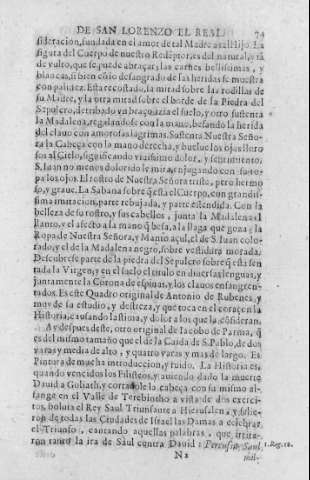 DE SAN LORENZO EL REAL. 74
sideracion, fundada en el amor de tal Madre azia el Hijo. La
figura del Cuerpo de nuestro Redẽptor, es del natural, està
de vulto, que se puede abraçar; las carnes bellissimas, y
blancas, si bien cõ lo desangrado de las heridas se muestra
con palidez. Està recostado, la mitad sobre las rodillas de
su Madre, y la otra mitad sobre el borde de la Piedra del
Sepulcro, derribado vn braço àzia el suelo, y otro sustenta
la Madalena, regalandose con la mano, besando la herida
del clauo con amorosas lagrimas. Sustenta Nuestra Seño-
ra la Cabeça con la mano derecha, y buelue los ojos lloro
sos al Cielo, significando viuissimo dolor, y sentimiento.
S. Iuan no menos dolorido le mira, enjugando con su to-
pa los ojos. El rostro de Nuestra Señora triste, pero hermo
so, y graue. La Sabana sobre q̃ està el Cuerpo, con grandis-
sima imitacion, parte rebujada, y parte estendida. Con la
belleza de su rostro, y sus cabellos, junta la Madalena el
llanto, y el afecto a la mano q̃ besa, a la llaga que goza; la
Ropa de Nuestra Señora, y Manto açul, el de S. Iuan colo-
rado, y el de la Madalena negro, sobre vestidura morada.
Descubrese parte de la piedra del Sepulcro sobre q̃ està sen
tada la Virgen, y en el suelo el titulo en diuersas lenguas, y
juntamente la Corona de espinas, y los clauos ensangren-
tados. Es este Quadro original de Antonio de Rubenes, y
muy de su estudio, y destreza, y que toca en el coraçon la
Historia, causando lastima, y dolor a los que la cõsideran.
Ay despues deste, otro original de Iacobo de Parma, q̃
es del mismo tamaño que el de la Caida de S. Pablo, de dos
varas y media de alto, y quatro varas y mas de largo. Es
Pintura de mucha introduccion, y ruido. La Historia es,
quando vencidos los Filisteos, y auiendo dado la muerte
Dauid a Goliath, y cortadole la cabeça con su mismo al-
fange en el Valle de Terebintho a vista de dos exerci-
tos, boluia el Rey Saul Triunfante a Hierusalen, y salie-
ron de todas las Ciudades de Israel las Damas a celebrar
el Triunfo, cantando aquellas palabras, que irrita-
ron tanto la ira de Saul contra Dauid: Percussit Saul, 1. Reg. 18.
N2 mil-